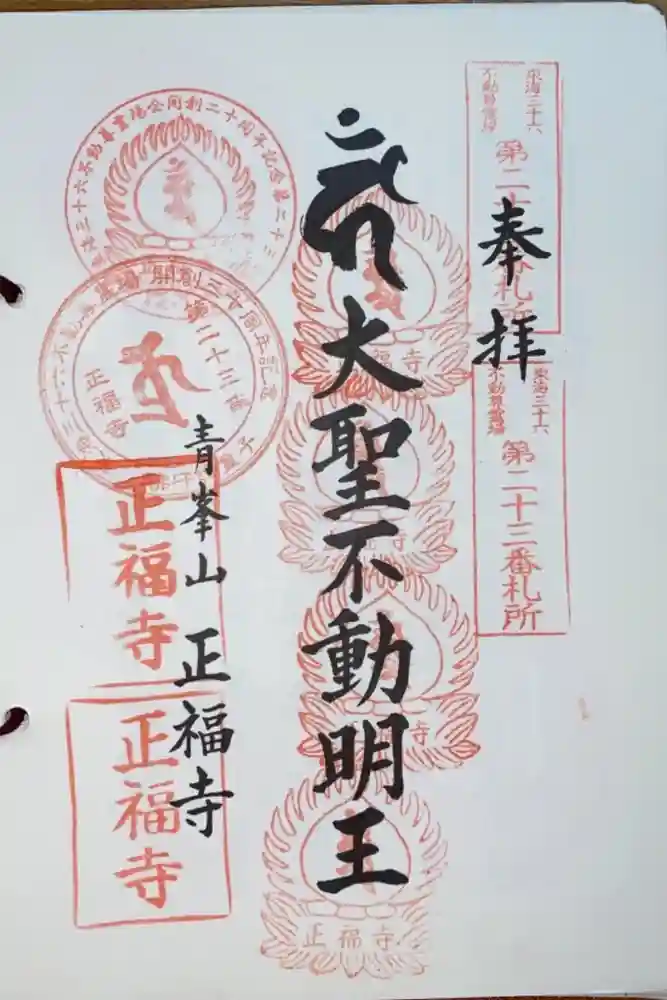 東海三十六
不動尊霊場
第二十三番札所
東海三十六
不動尊霊場
第二十三番札所
奉拝
大聖不動明王
福寺
正福寺
寺
正福寺
不動尊霊場会開創二十周年記念第二十三
開創三十周年記念
第二十三番
正福寺
青峯山 正福寺
正福寺
正福寺